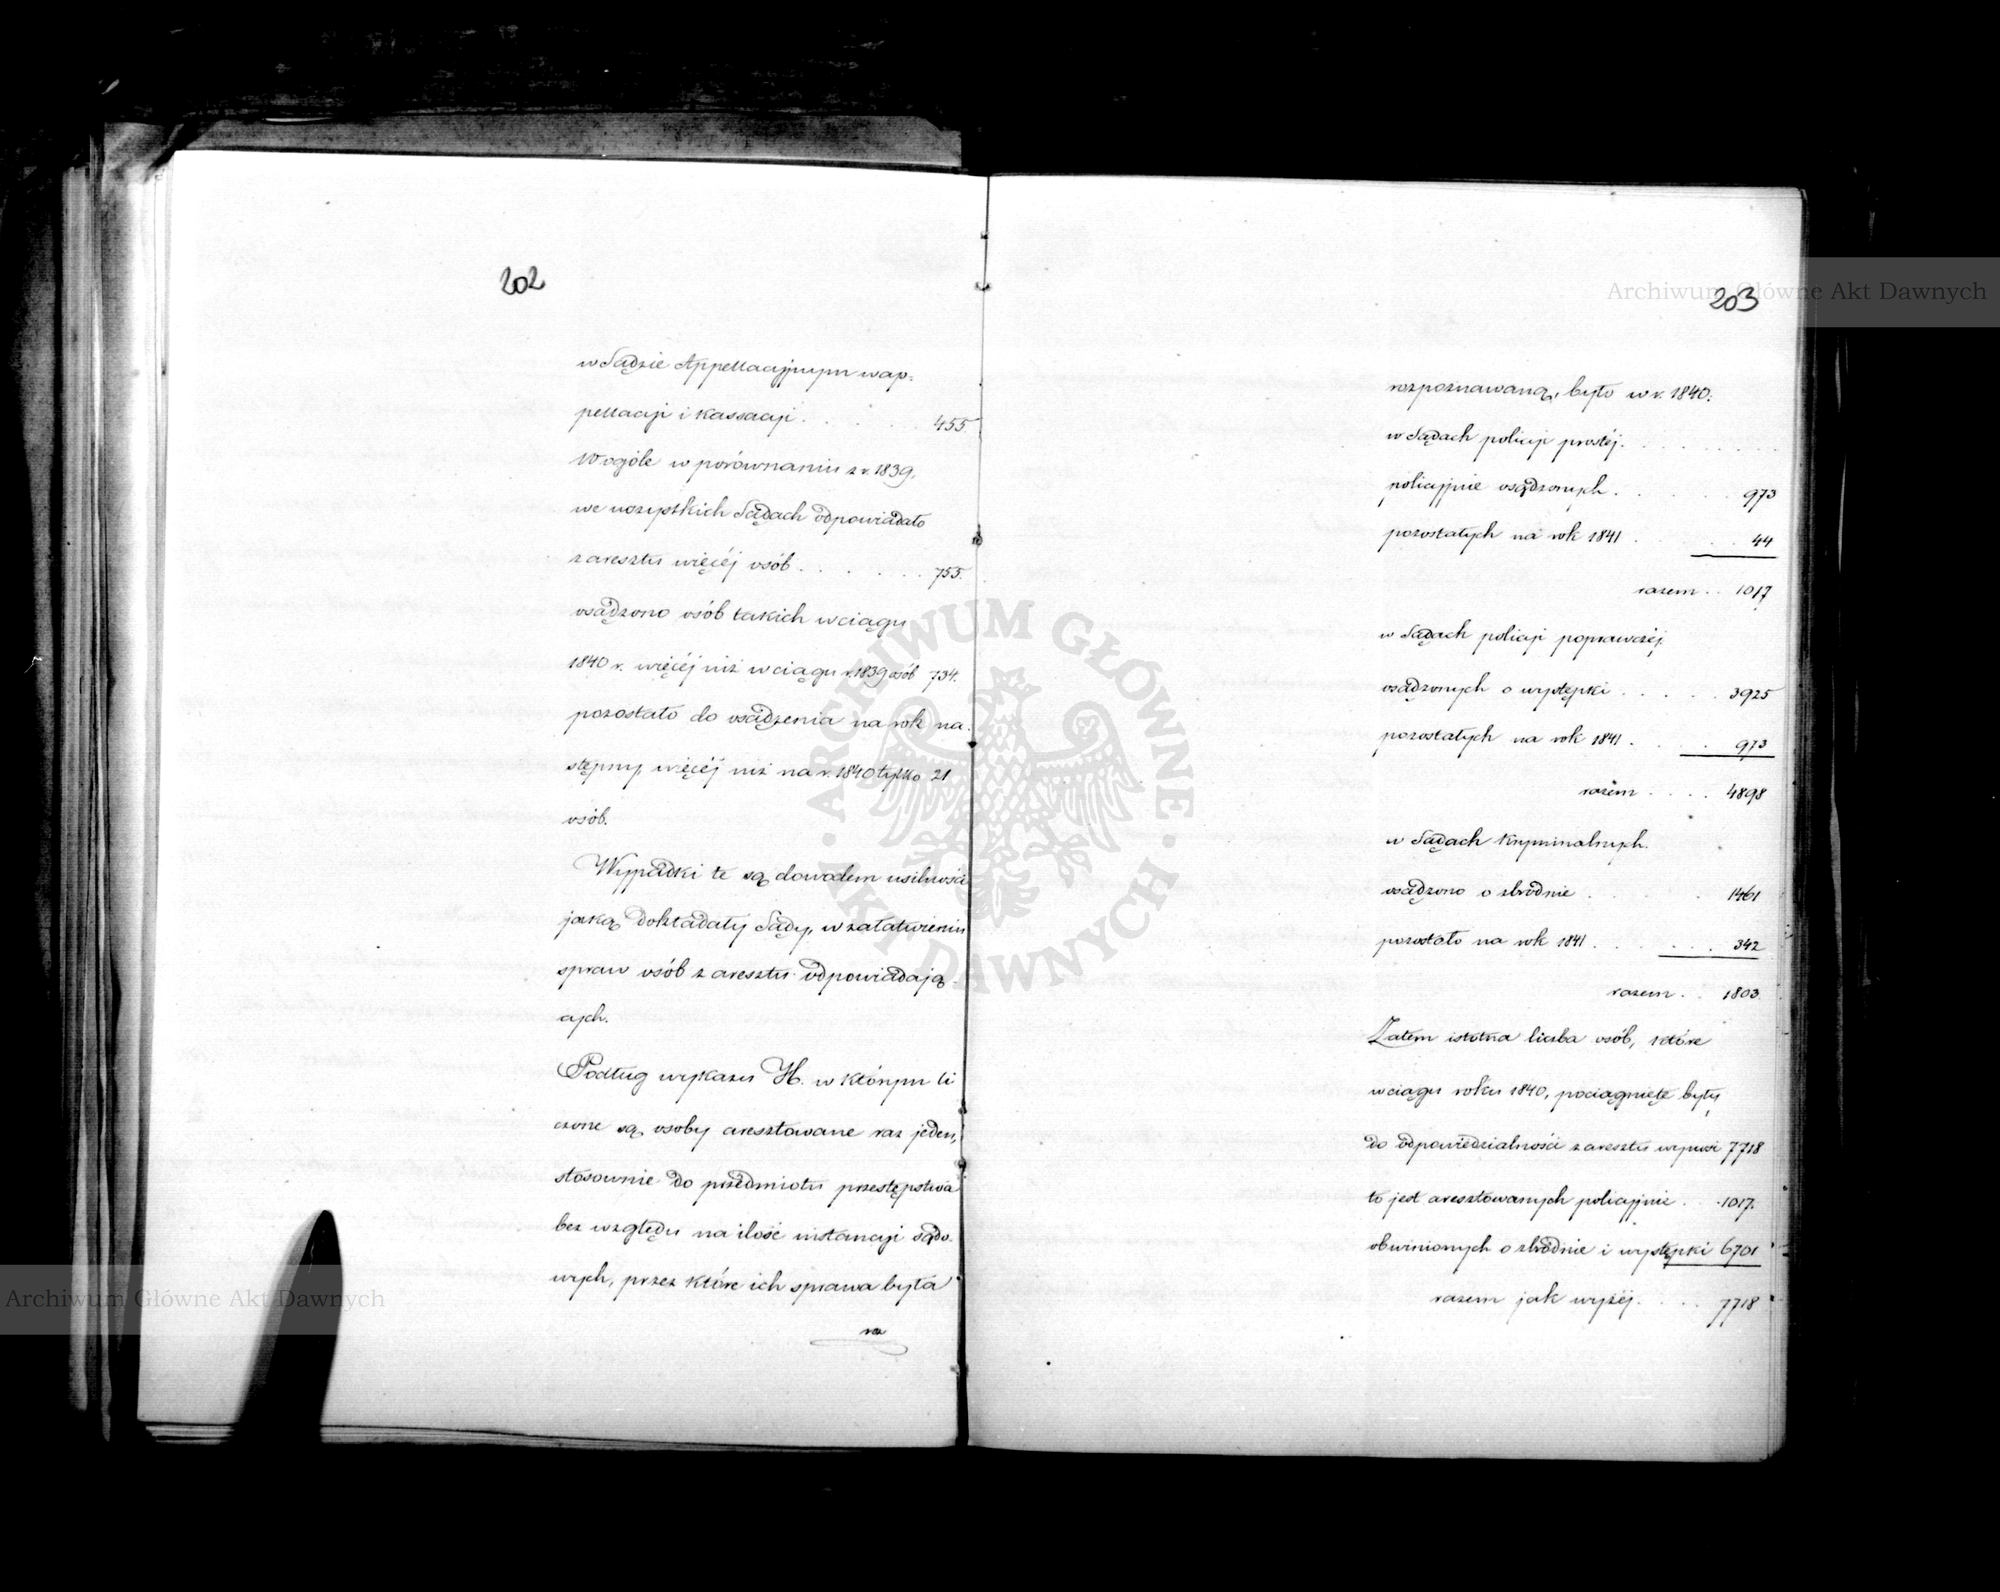 202
w Sądzie Appellacyjnym w ap-
pellacji i kassacji . . . . . . 455.
W ogóle w porównaniu z r. 1839,
we wszystkich Sądach odpowiadało
z aresztu więcéj osób . . . . . . 755.
osądzono osób takich w ciągu
1840 r. więcéj niż w ciągu r. 1839 osób 734.
pozostało do osądzenia na rok na-
stępny, więcéj niż na r. 1840 tylko 21
osób.
Wypadki te są dowodem usilności
jaką dokładały Sądy, w załatwieniu
spraw osób z aresztu odpowiadają-
cych.
Podług wykazu H. w którym li
czone są osoby aresztowane raz jeden,
stosownie do przedmiotu przestępstwa
bez względu na ilość instancji sądo-
wych, przez które ich sprawa była
roz
203
rozpoznawaną, było w r. 1840.
w Sądach policji prostéj . . . . . . . .
policyjnie osądzonych . . . . . . 973
pozostałych na rok 1841 . . . . 44
razem . . 1017
w Sądach policji poprawczéj.
osądzonych o występki . . . . . 3925
pozostałych na rok 1841 . . . . 973
razem . . . . 4898
w Sądach Kryminalnych.
osądzono o zbrodnie . . . . . 1461
pozostało na rok 1841 . . . . . . 342
razem . . 1803
Zatem istotna liczba osób, które
w ciągu roku 1840, pociągnięte były
do odpowiedzialności z aresztu wynosi 7718
to jest aresztowanych policyjnie . . . 1017.
obwinionych o zbrodnie i występki 6701
razem jak wyżéj . . . . 7718
Archiwum Główne Akt Dawnych
Archiwum Główne Akt Dawnych
· ARCHIWUM GŁÓWNE · AKT DAWNYCH